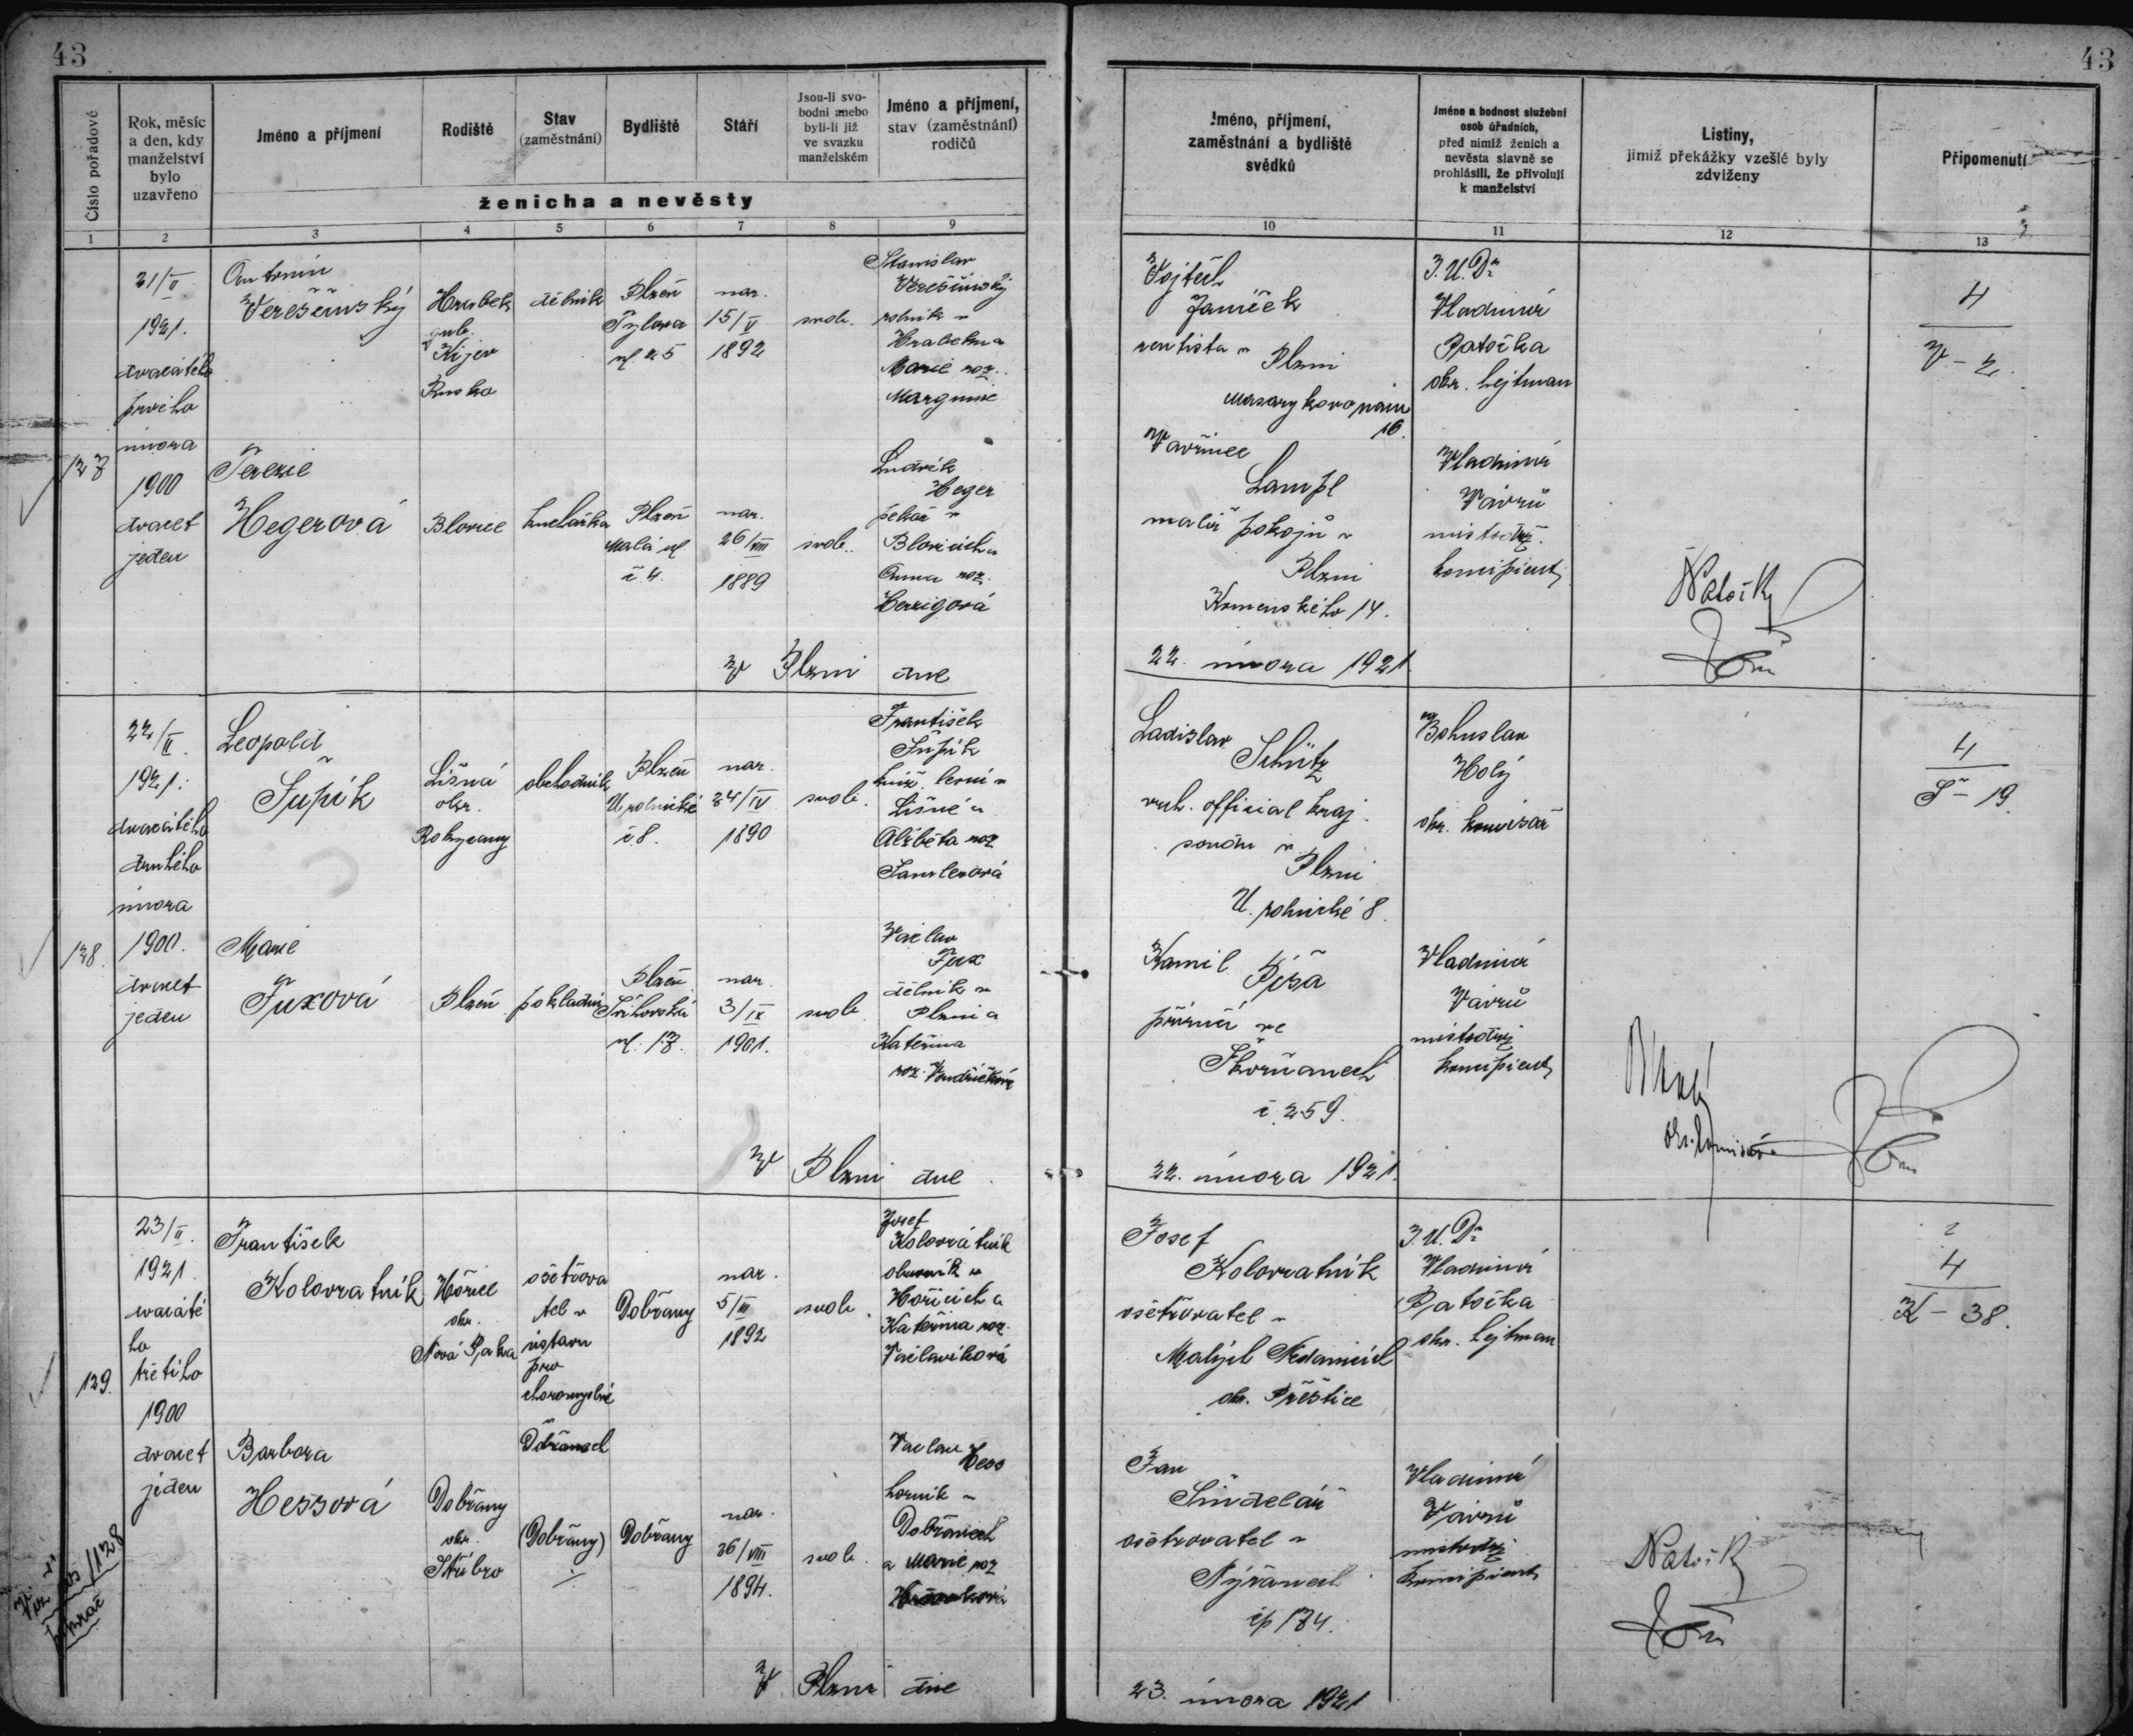 43
43
Číslo pořadové
Rok, měsíc
a den, kdy
manželství
bylo
uzavřeno
Jméno a příjmení
Rodiště
Stav
(zaměstnání)
Bydliště
Stáří
Jsou-li svo-
bodni anebo
byli-li již
ve svazku
manželském
Jméno a příjmení,
stav (zaměstnání)
rodičů
ženicha a nevěsty
Jméno, příjmení,
zaměstnání a bydliště
svědků
Jméno a hodnost služební
osob úřadních,
před nimiž ženich a
nevěsta slavně se
prohlásili, že přivolují
k manželství
Listiny,
jimiž překážky vzešlé byly
zdviženy
Připomenutí
1 2 3 4 5 6 7 8 9 10 11 12 13
127
21/II
1921.
dvacátého
prvého
února
1900
dvacet
jeden
Antonín
Verešinský
Hrubek
gub.
Kijev
Rusko
dělník
Plzeň
Tylova
ul. 25
nar.
15/V
1892
svob.
Stanislav
Verešinský
rolník v
Marie roz.
Terezie
Hegerová
Blovice
kuchařka
Plzeň
Malá ul
č. 4.
nar.
26/VIII
1889
svob.
Ludvík
Heger
pekař v
Blovicích a
Anna roz.
Herzigová
Vojtěch
Janíček
rentista v
Plzni
Masarykovo nám
16.
Vavřinec
Lampl
malíř pokojů v
Plzni
Komenského 14.
J.U.Dr
Vladimír
Patočka
okr. hejtman
Vladimír
Vávrů
místodrž.
koncipient
4
V - 2.
V Plzni dne 22. února 1921.
128.
22/II.
1921.
dvacátého
druhého
února
1900.
dvacet
jeden
Leopold
Šupík
Líšná
okr.
Rokycany
obchodník
Plzeň
U rolnické
č 8.
nar.
24/IV
1890
svob.
František
Šupík
kníž. lesní v
Líšné a
Alžběta roz
Marie
Fuxová
Plzeň
pokladní
Plzeň
ul. 17.
nar.
3/IX
1901.
svob.
Václav
Fux
dělník v
Plzni a
Kateřina
roz. Vondřičková
Ladislav
Schütz
official kraj.
soudu v
Plzni
U. rolnické 8.
Kamil
Píša
ve
Skvrňanech
č. 259.
Bohuslav
Holý
okr. komisař
Vladimír
Vávrů
místodrž
koncipient
4
Š - 19.
okr. komisař
V Plzni dne 22. února 1921.
129.
23/II.
1921.
dvacáté
ho
třetího
1900
dvacet
jeden
František
Kolovratník
Hořice
okr.
Nová Paka
ošetřova
tel v
ústavu
pro
choromyslné
Dobřanech
Dobřany
nar.
5/III
1892
svob.
Josef
Kolovrátník
obuvník v
Hořicích a
Kateřina roz.
Václavíková
Barbora
Hessová
Dobřany
okr.
Stříbro
(Dobřany)
Dobřany
nar.
26/VIII
1894.
svob.
Václav
Hess
horník v
Dobřanech
a Marie roz
Josef
Kolovratník
ošetřovatel v
Malých
okr. Přeštice
Jan
Šindelář
ošetrovatel v
Nýřanech
čp 174.
J.U.Dr
Vladimír
Patočka
okr. hejtman
Vladimír
Vávrů
místodrž
koncipient
4
K - 38.
V Plzni dne 23. února 1921